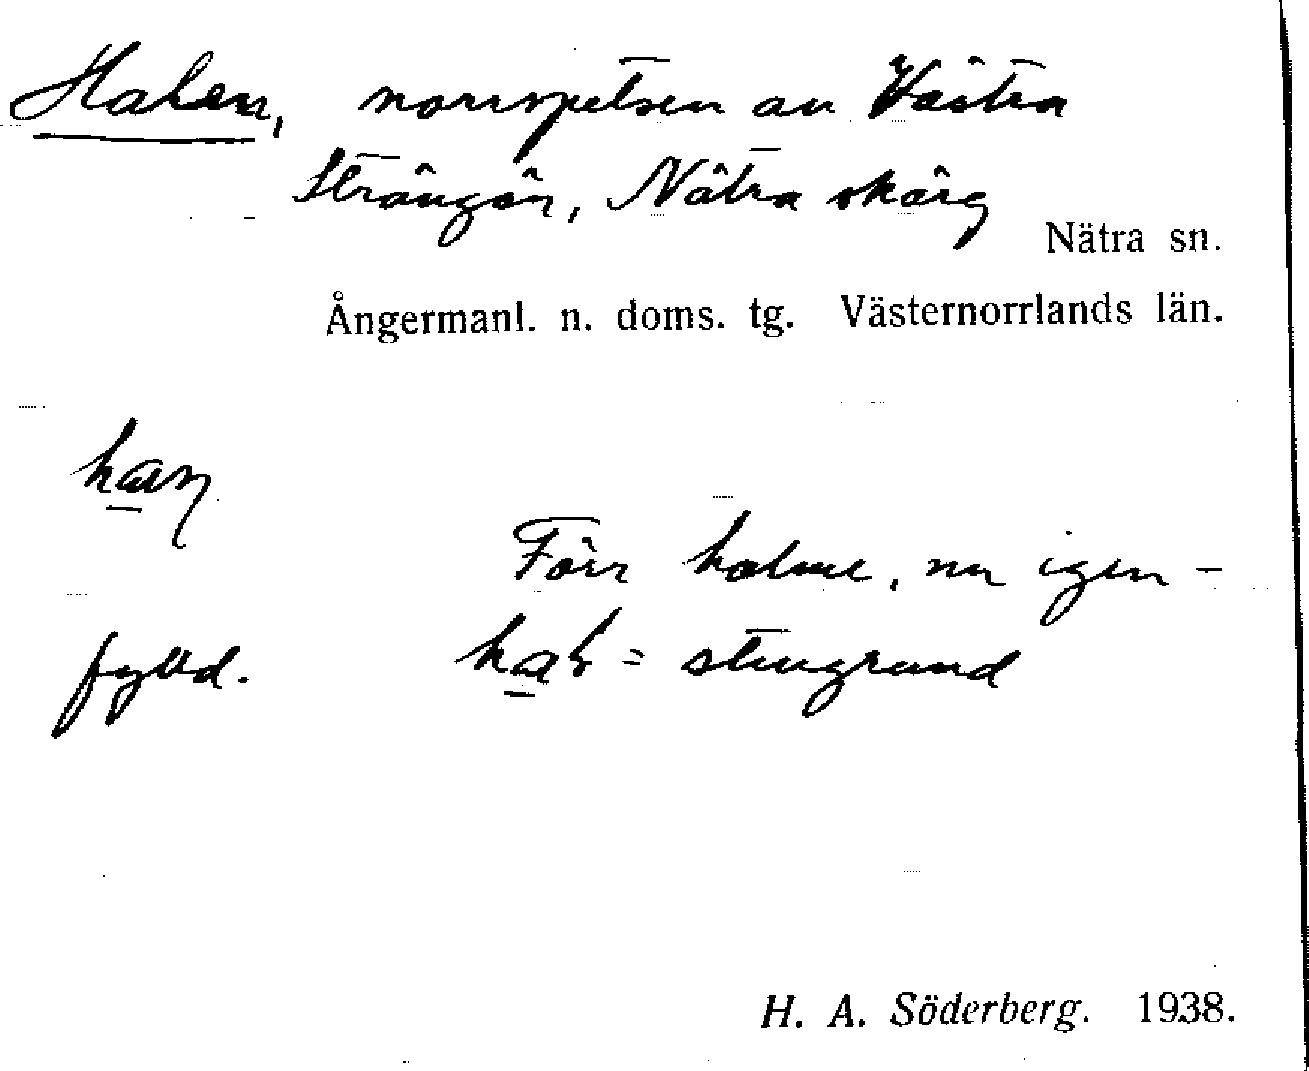 Halen, norrspetsen av Västra
Strängön, Nätra skärg
Nätra sn.
Ångermanl. n. doms. tg. Västernorrlands län.
Förr holme, nu igen-
fylld. = stengrund
H. A. Söderberg. 1938.